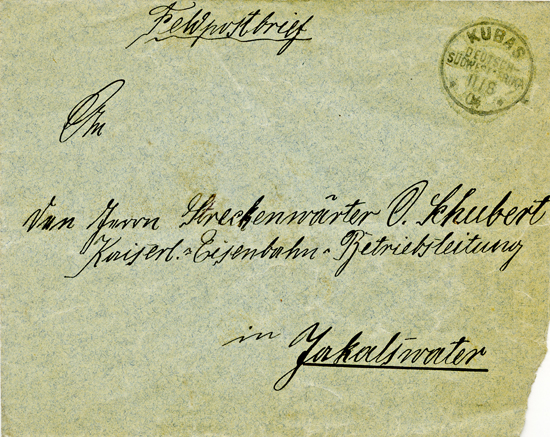 Feldpostbrief
KUBAS
DEUTSCH-
SÜDWESTAFRIKA
11/8
04
An
den Herrn Streckenwärter O. Schubert
Kaiserl.-Eisenbahn-Betriebsleitung
in Jakalswater